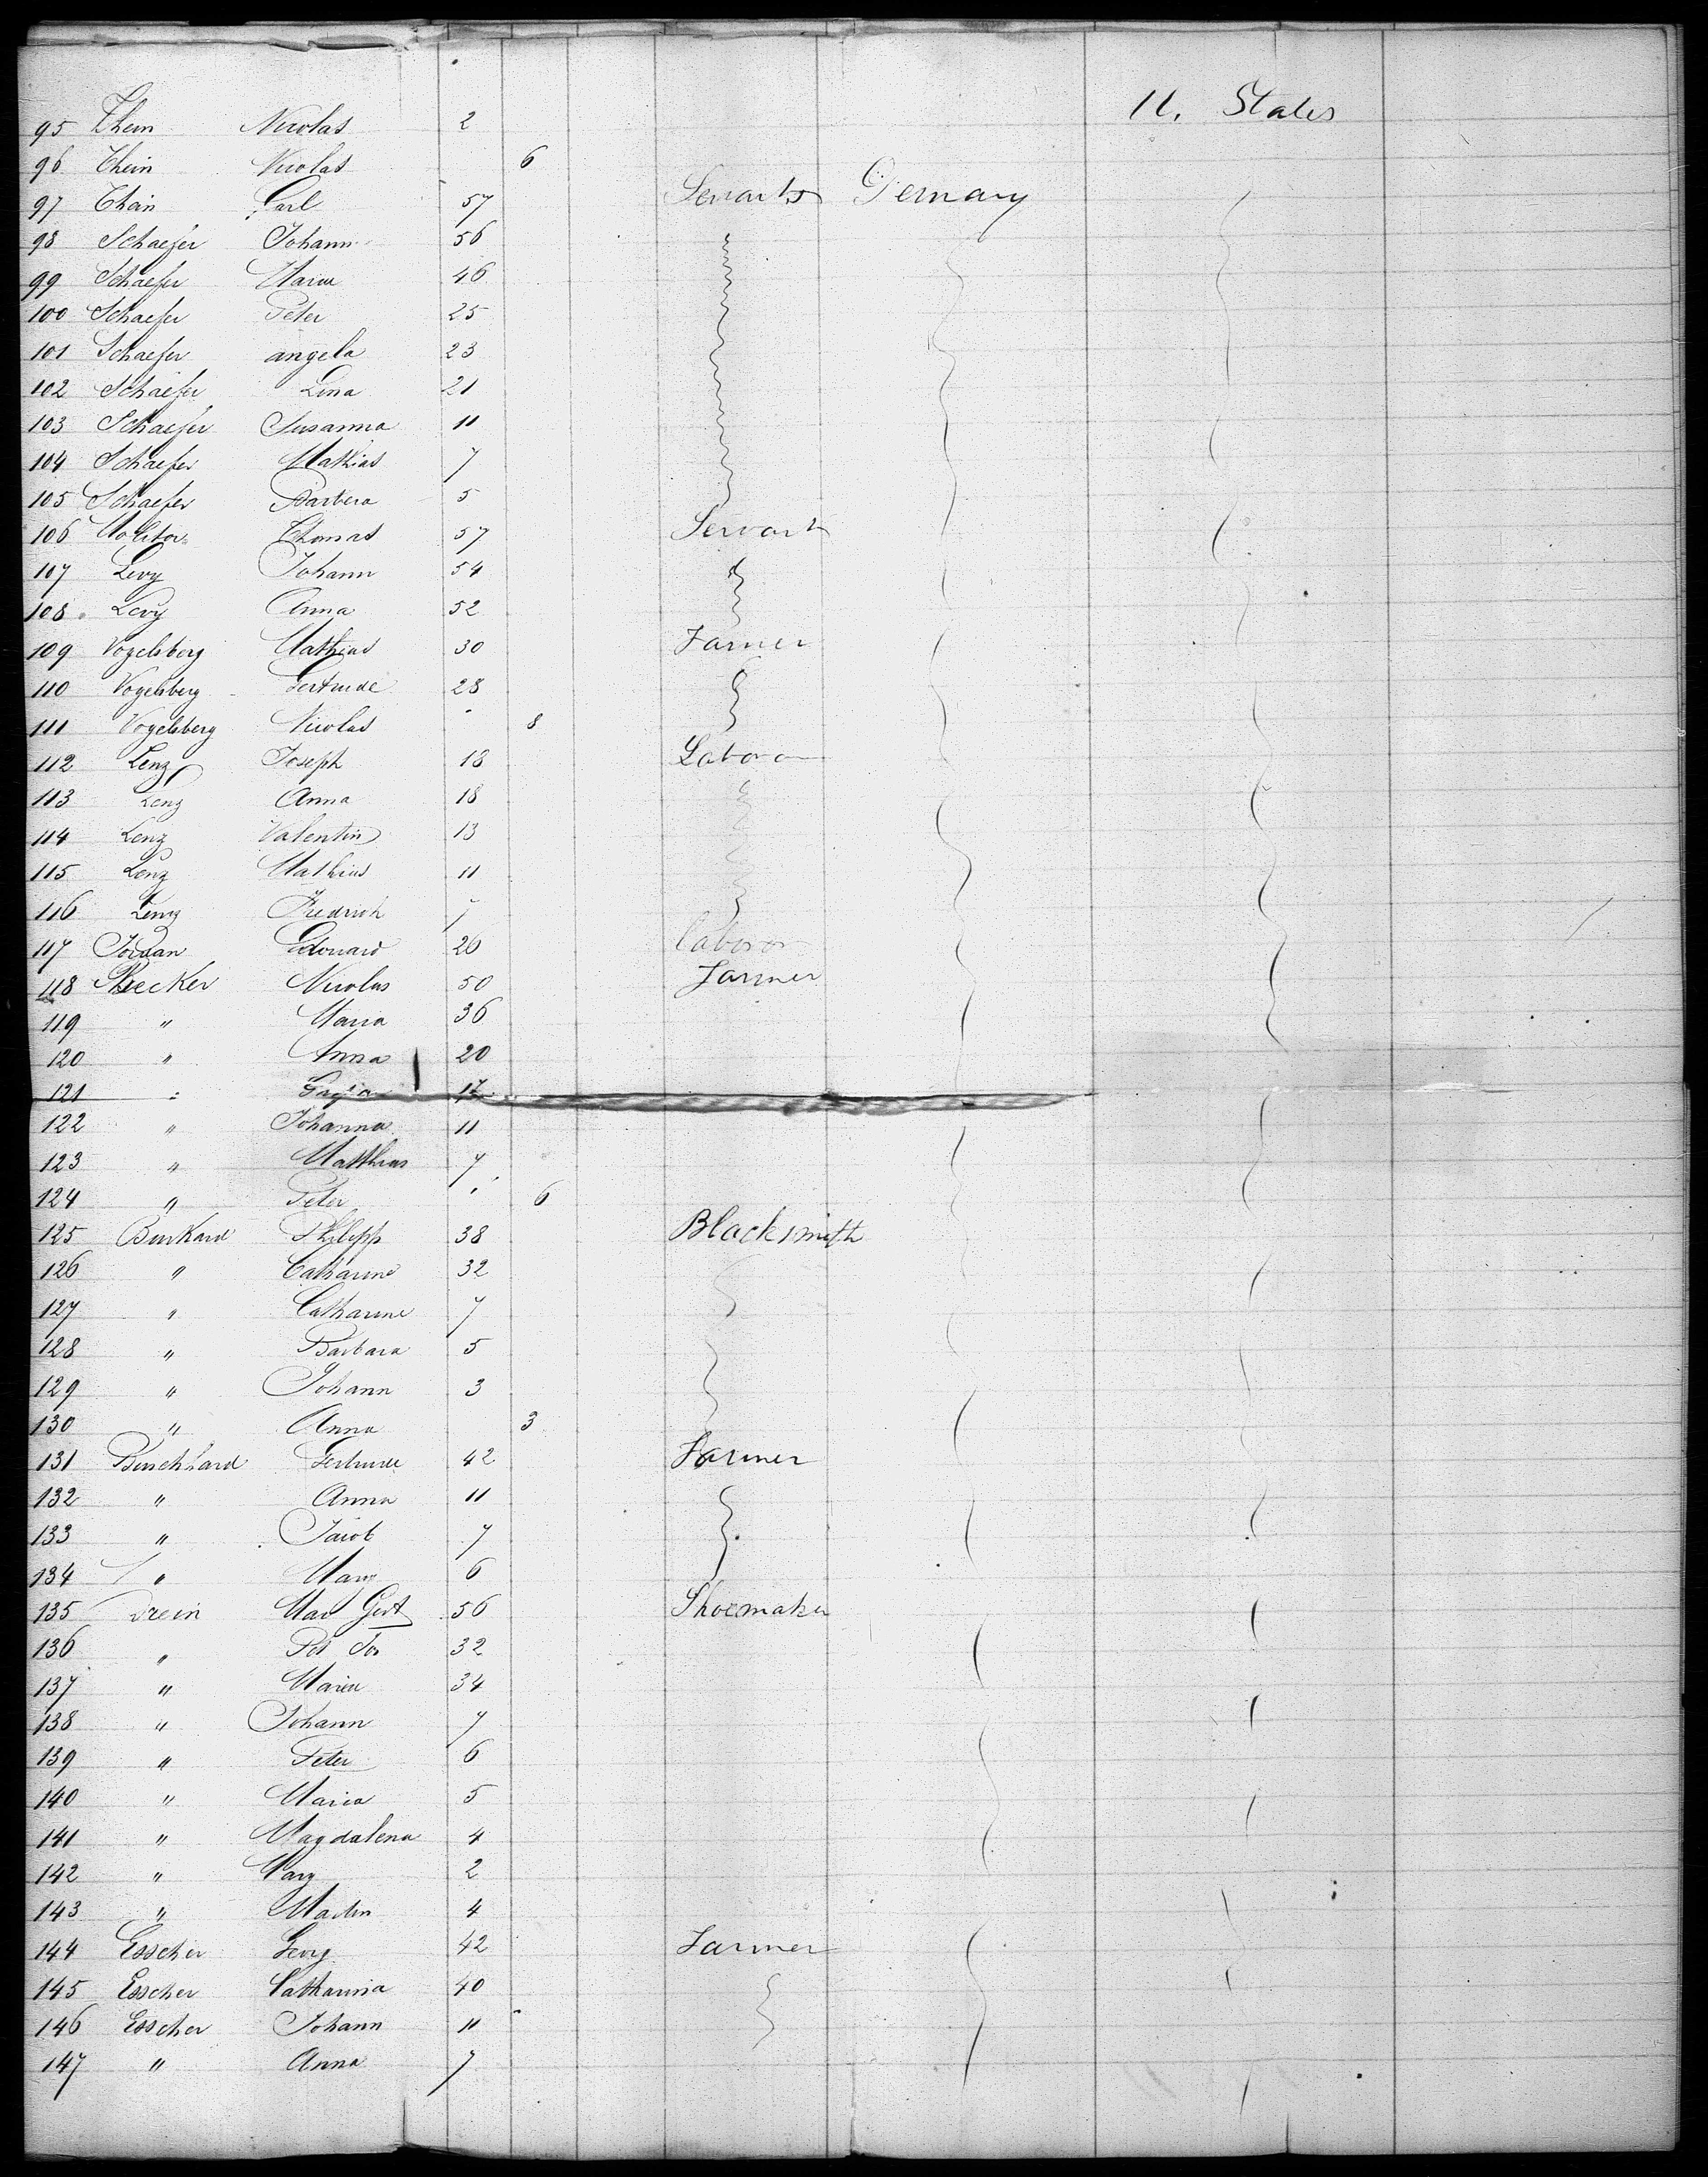 U. States
95 Thein Nicolas 2
96 Thein Nicolas 6
97 Thein Carl 57 Servants Germany
98 Schaefer Johann 56
99 Schaefer Marie 46
100 Schaefer Peter 25
101 Schaefer angela 23
102 Schaefer Lena 21
103 Schaefer Susanna 11
104 Schaefer Mathias 7
105 Schaefer Barbera 5
106 Molitor Thomas 57 Servant
107 Levy Johann 54
108 Levy Anna 52
109 Vogelsberg Mathias 30 Farmer
110 Vogelsberg Gertrude 28
111 Vogelsberg Nicolas 8
112 Lenz Joseph 18 Laboror
113 Lenz Anna 18
114 Lenz Valentin 13
115 Lenz Mathias 11
116 Lenz Fredrich 7
117 Jordan Edouard 26 Laboror
118 Becker Nicolas 50 Farmer
119 " Maria 36
120 " Anna 20
121 " 17
122 " Johanna 11
123 " Matthias 7
124 " Peter 6
125 Burkard Philipp 38 Blacksmith
126 " Catharine 32
127 " Catharine 7
128 " Barbara 5
129 " Johann 3
130 " Anna 3
131 Burchhard Gertrude 42 Farmer
132 " Anna 11
133 " Jacob 7
134 " Marg 6
135 Drein Mar Gert 56 Shoemaker
136 " 32
137 " Maria 34
138 " Johann 7
139 " Peter 6
140 " Maria 5
141 " Magdalena 4
142 " Marg 2
143 " Martin 4
144 Esscher Georg 42 Farmer
145 Esscher Catharina 40
146 Esscher Johann 11
147 " Anna 7